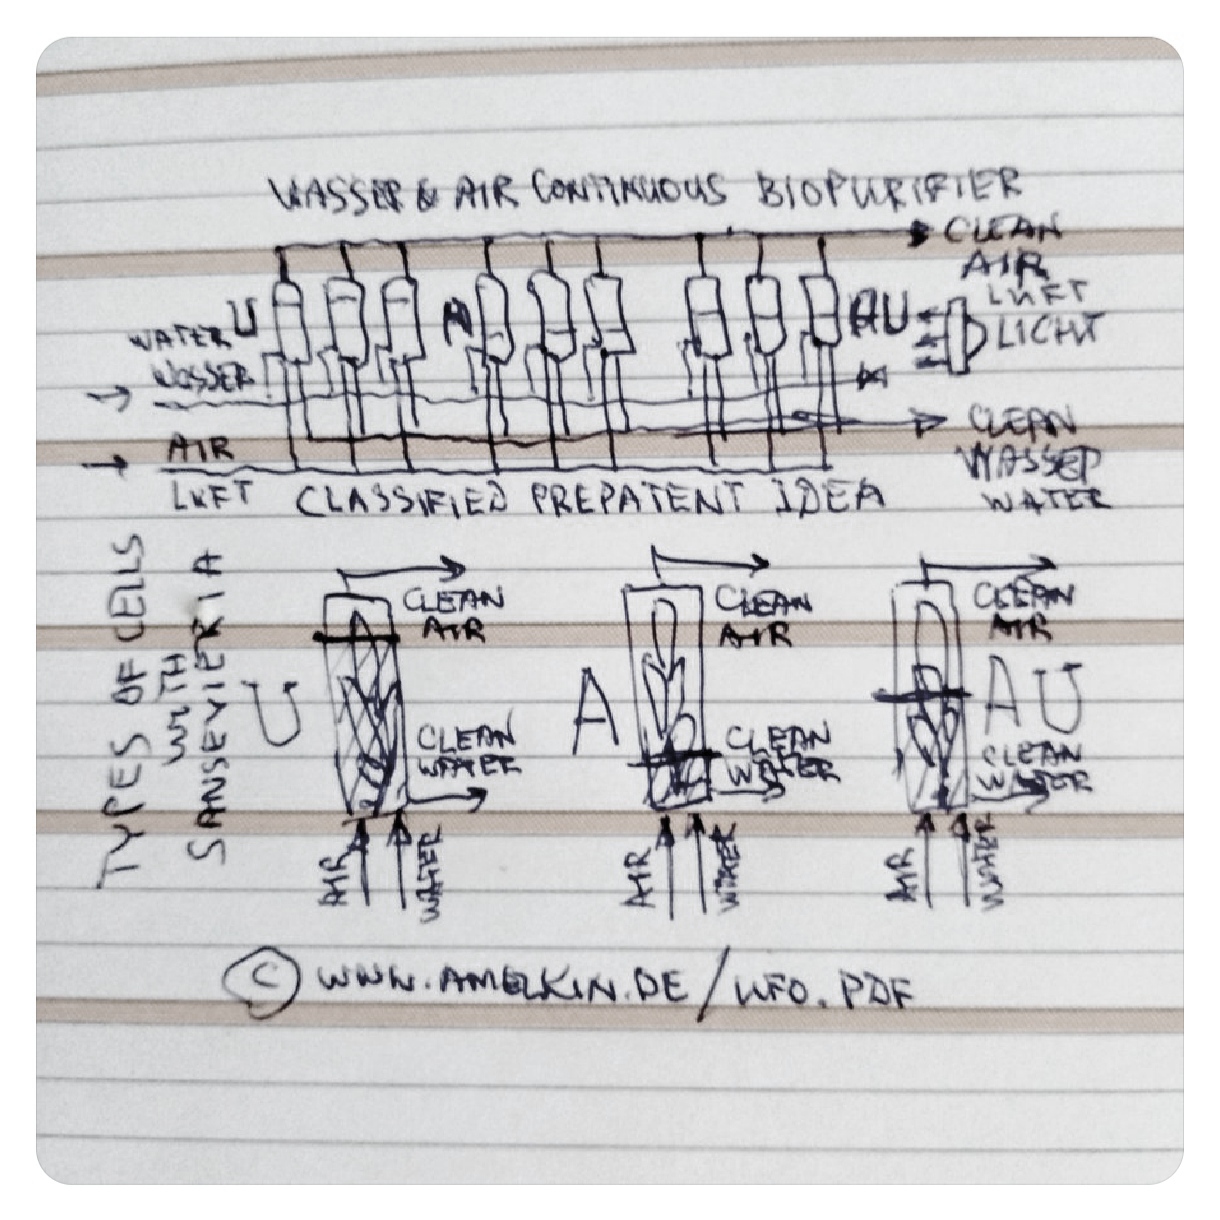 WASSER & AIR CONTINUOUS BIOPURIFIER
CLEAN
AIR
LUFT
U
A
AU
LICHT
WATER
WASSER
AIR
LUFT
CLEAN
WASSER
WATER
CLASSIFIED PREPATENT IDEA
TYPES OF CELLS
WITH
SANSEVIERIA
U
CLEAN
AIR
CLEAN
WATER
AIR
WATER
A
CLEAN
AIR
CLEAN
WATER
AIR
WATER
AU
CLEAN
AIR
CLEAN
WATER
AIR
WATER
© WWW.AMELKIN.DE/UFO.PDF